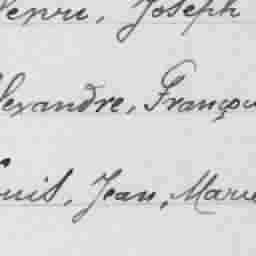 Henri, Joseph
Alexandre, François
Louis, Jean, Marie